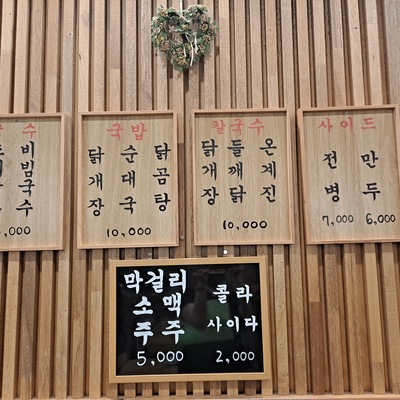 수
비빔국수
,000
국밥
닭개장
순대국
닭곰탕
10,000
칼국수
닭개장
들깨닭
온계진
10,000
사이드
전병
만두
7,000 6,000
막걸리
소주
맥주
5,000
콜라
사이다
2,000